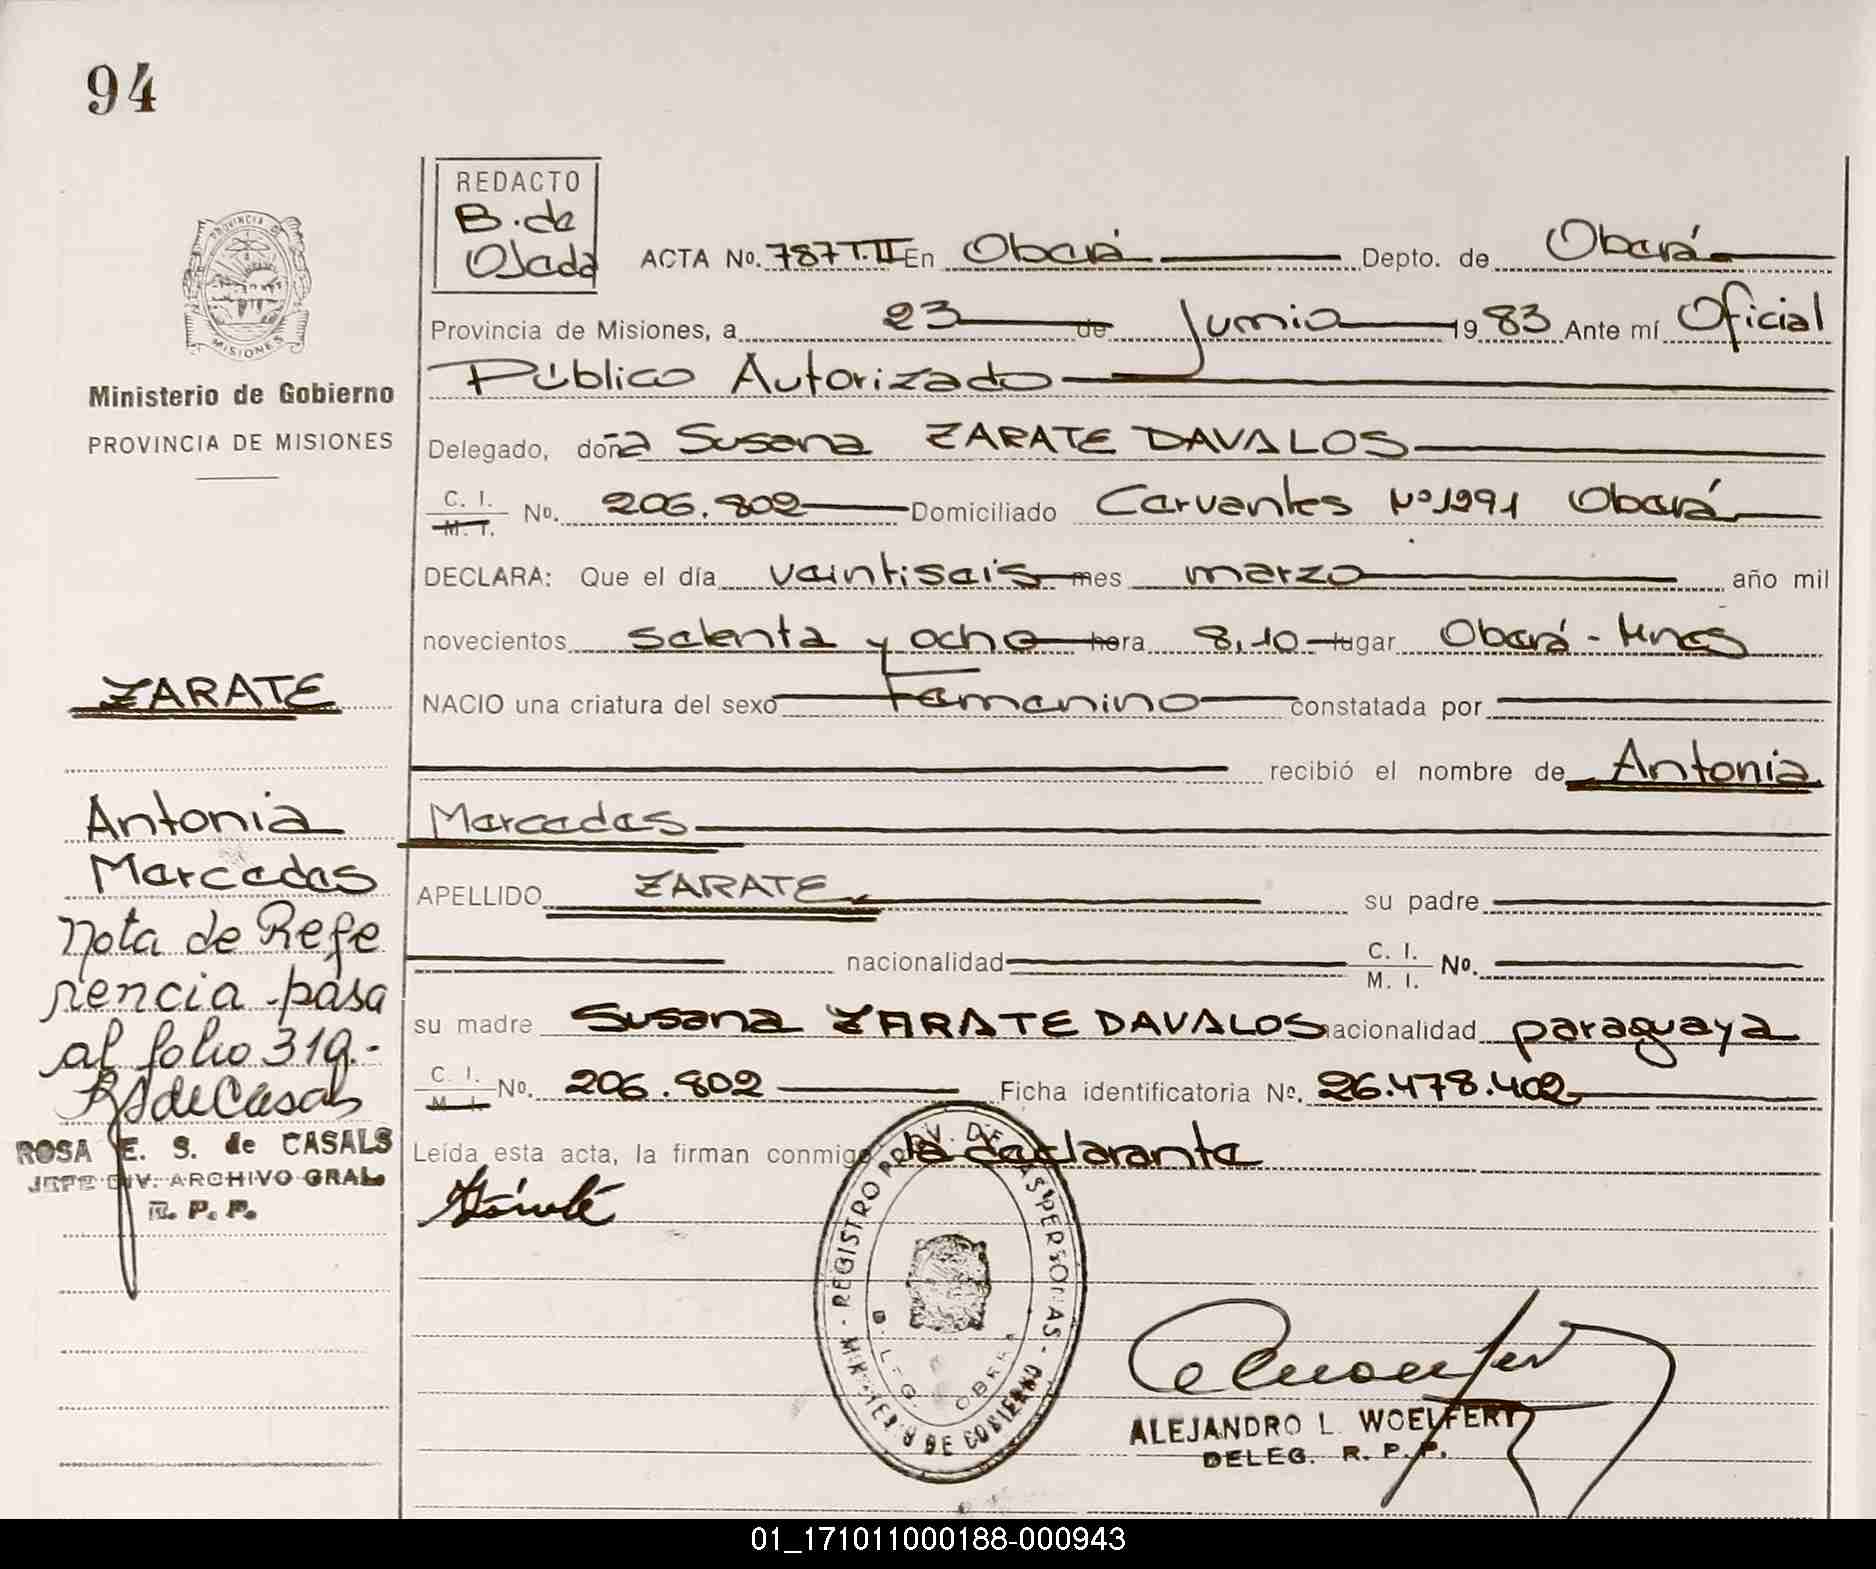 94
REDACTO
B. de
Ojeda
ACTA No. 787 T. II En Oberá Depto. de Oberá
Provincia de Misiones, a 23 de Junio 1983 Ante mí Oficial
Público Autorizado
Delegado, doña Susana ZARATE DAVALOS
C. I.
M. I.
No. 206.802 Domiciliado Cervantes Nº 1291 Oberá
DECLARA: Que el día veintiseis mes marzo año mil
novecientos setenta y ocho hora 8,10 lugar Oberá - Mnes
NACIO una criatura del sexo Femenino constatada por
recibió el nombre de Antonia
Mercedes
APELLIDO ZARATE su padre
nacionalidad C. I.
M. I. No.
su madre Susana ZARATE DAVALOS nacionalidad paraguaya
C. I.
M. I.
No. 206.802 Ficha identificatoria No. 26.478.402
Leída esta acta, la firman conmigo la declarante
Zárate
REGISTRO PROV. DE LAS PERSONAS - MINISTERIO DE GOBIERNO -
DELEG. OBERA
ALEJANDRO L. WOELFERT
DELEG. R. P. P.
PROVINCIA DE
MISIONES
Ministerio de Gobierno
PROVINCIA DE MISIONES
ZARATE
Antonia
Mercedes
nota de Refe
rencia - pasa
al folio 319.-
RSdeCasals
ROSA E. S. de CASALS
JEFE DIV. ARCHIVO GRAL.
R. P. P.
01_171011000188-000943